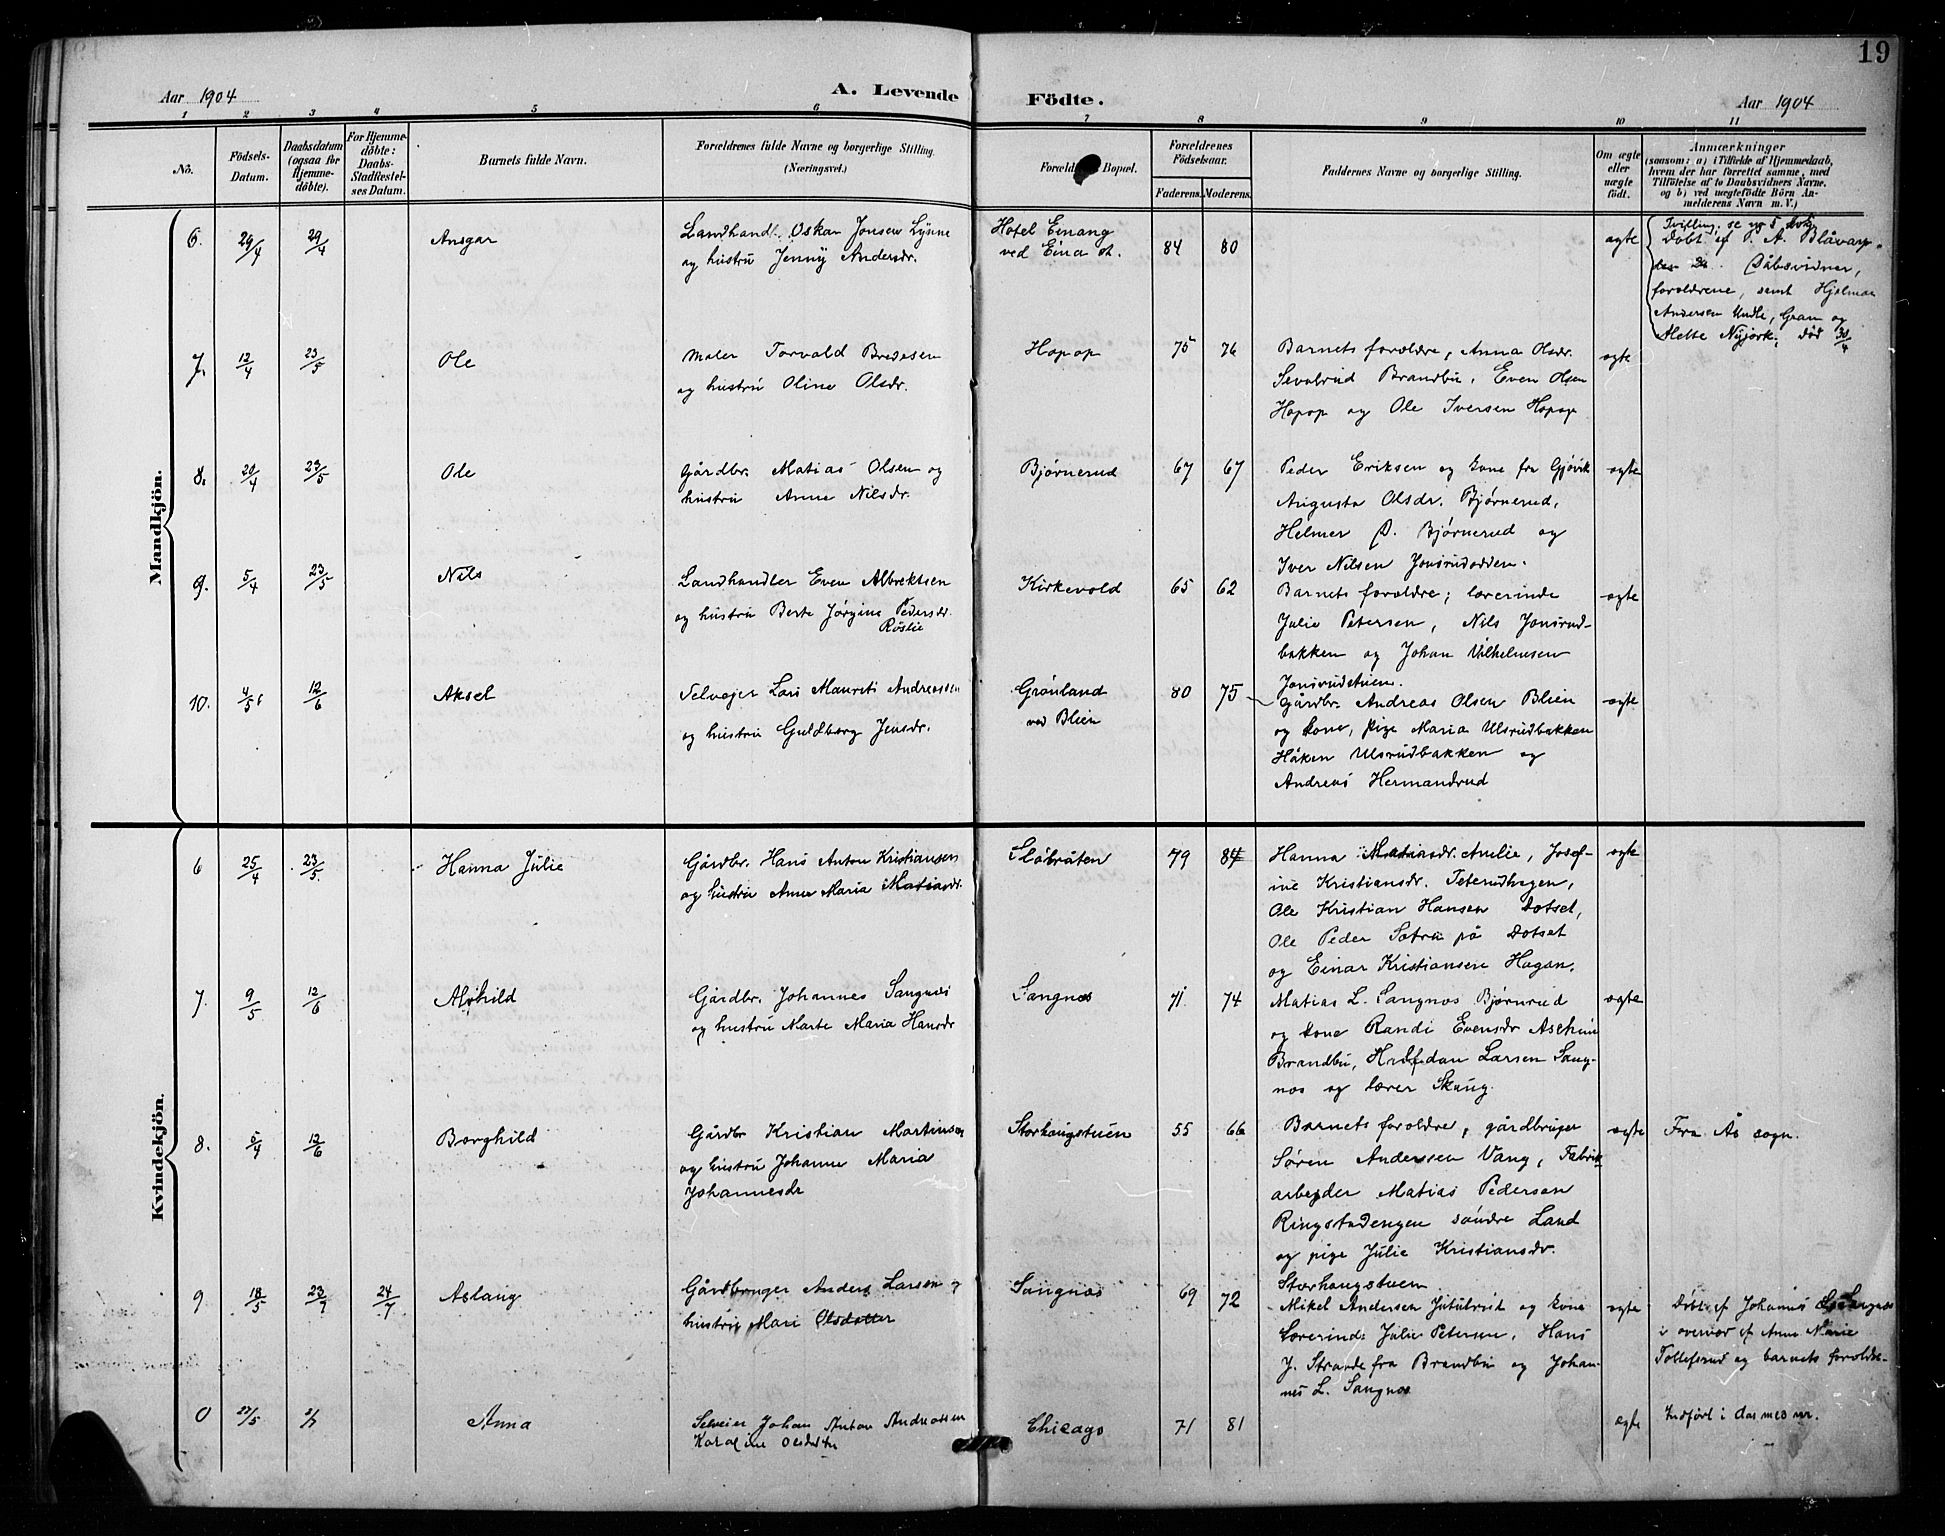 19
Aar 1904
A. Levende Födte.
Aar 1904
1 2 3 4 5 6 7 8 9 10 11
No.
Födsels-
Datum.
Daabsdatum
(ogsaa for
Hjemme-
döbte).
For Hjemme-
döbte:
Daabs-
Stadfæstel-
ses Datum.
Barnets fulde Navn.
Forældrenes fulde Navne og borgerlige Stilling.
(Næringsvei.)
Bopæl.
Forældrenes
Födselsaar.
Faderens. Moderens.
Faddernes Navne og borgerlige Stilling.
Om ægte
eller
uægte
födt.
Anmærkninger
(saasom: a) i Tilfælde af Hjemmedaab,
hvem der har forrettet samme, med
Tilföielse af to Daabsvidners Navne.
og b) ved uægtefödte Börn An-
melderens Navn m. V.)
Mandkjön.
6. 29/4 29/4 Ansgar
Landhandl. Oskar Jonsen Lynne
og hustru Jenny Andersdr.
Hotel Einang
ved Eina st.
84 80
ægte
Tvilling; se no 5
Døbt af P. A. Blåvarp
Dåbsvidner,
forældrene, samt Hjalmar
Andersen Undli, Gran og
Mette Nyjork, død 30/4
7. 12/4 23/5 Ole
Maler Torvald Bredesen
og hustru Oline Olsdr.
Hopop
75 76
Barnets forældre, Anna Olsdr.
Sevalrud Brandbu, Even Olsen
Hopop og Ole Iversen Hopop
ægte
8. 20/4 23/5 Ole
Gårdbr. Matias Olsen og
hustru Anne Nilsdr.
Bjørnerud
67 67
Peder Eriksen og kone fra Gjøvik
Augusta Olsdr. Bjørnerud,
Helmer P. Bjørnerud og
Iver Nilsen Jonsrudodden.
ægte
9. 5/4 23/5 Nils
Landhandler Even Albrektsen
og hustru Berte Jørgine Pedersdr.
Røslie
Kirkevold
65 62
Barnets forældre; lærerinde
Julie Petersen, Nils Jonsrud-
bakken og Johan Vilhelmsen
Jonsrudstuen.
ægte
10. 4/5 12/6 Aksel
Selvejer Lars Maurits Andreassen
og hustru Guldborg Jensdr.
Grønland
ved Blien
80 75
Gårdbr. Andreas Olsen Blien
og kone, pige Maria Ulsrudbakken
Håken Ulsrudbakken og
Andreas Hermandrud
ægte
Kvindekjön.
6 25/4 23/5. Hanna Julie
Gårdbr. Hans Anton Kristiansen
og hustru Anne Maria Matiasdr.
Sløbråten
79 84
Hanna Matiasdr. Amelie, Josef-
ine Kristiansdr. Teterudhagen,
Ole Kristian Hansen Dotset,
Ole Peder Sætra på Dotset
og Einar Kristiansen Hagan.
ægte
7. 9/5 12/6 Alvhild
Gårdbr. Johannes Sangnæs
og hustru Marte Maria Hansdr
Sangnæs
71 74
Matias L. Sangnæs Bjørnrud
og kone Randi Evensdr Aschim
Brandbu, Halfdan Larsen Sang-
næs og lærer Skaug.
ægte
8. 5/4 12/6 Borghild
Gårdbr Kristian Martinsen
og hustru Johanne Maria
Johannesdr
Storhaugstuen
55 66
Barnets forældre, gårdbruger
Søren Andersen Vang, Fabrik
arbejder Matias Pedersen
Ringstadengen søndre Land
og pige Julie Kristiansdr.
Storhaugstuen
ægte
Fra Ås sogn.
9. 18/5 23/7 24/7 Aslaug
Gårdbruger Anders Larsen og
hustru Mari Olsdatter
Sangnæs
69 72
Mikel Andersen og kone
Lærerinde Julie Petersen, Hans
J. Strande fra Brandbu og Johan-
nes L. Sangnæs
ægte
Døbt af Johannes Sangnæs
i overvær af Anne Marie
Tollefsrud og barnets forældre.
0 27/5 3/7 Anna
Selveier Johan Anton Andreassen
Karoline Olsdatter
Chicago
71 81
ægte
Indført i